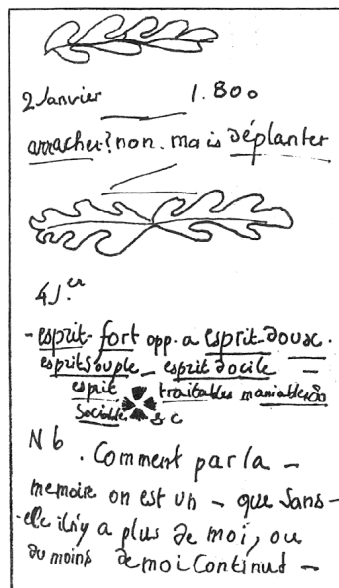 2 Janvier 1.800
arracher? non. mais déplanter
4 J.er
- esprit-fort opp. a esprit-doux.
esprit souple - esprit docile -
esprit traitables maniables
Sociable &c
Nb. Comment par la -
memoire on est un - que sans -
elle il n'y a plus de moi, ou
du moins de moi continut -